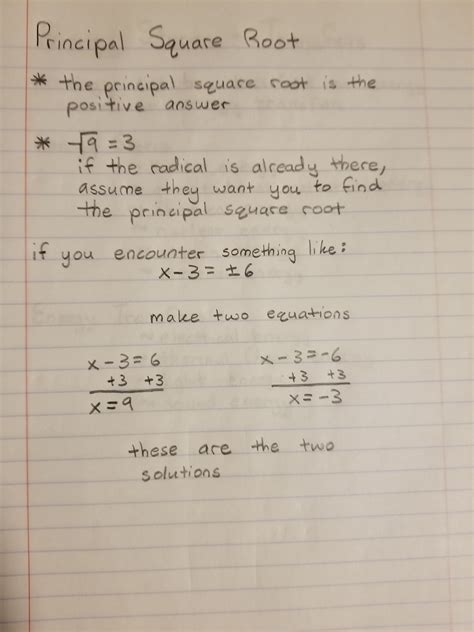 Principal Square Root
* the principal square root is the
positive answer
* √9 = 3
if the radical is already there,
assume they want you to find
the principal square root
if you encounter something like:
x - 3 = ± 6
make two equations
x - 3 = 6 x - 3 = -6
+3 +3 +3 +3
x = 9 x = -3
these are the two
solutions